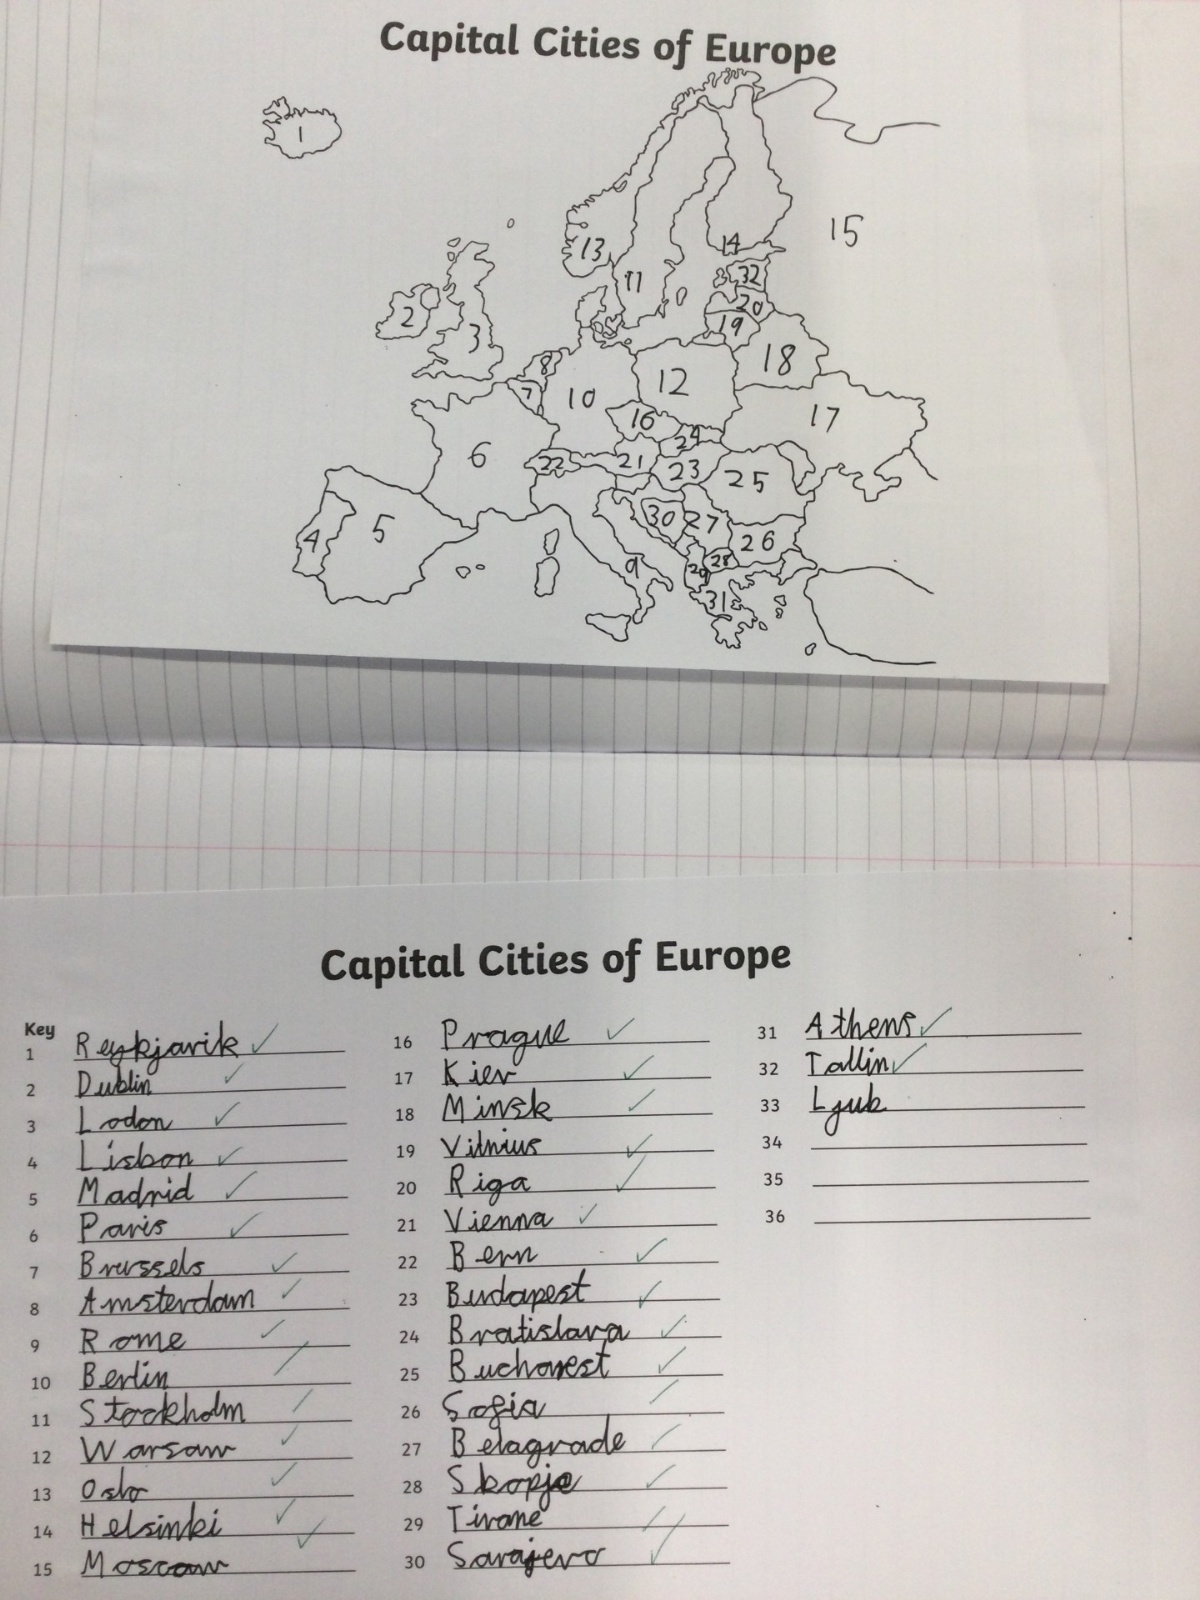 Capital Cities of Europe
1
13
15
14
11
32
2
20
3
19
8
18
7
10
12
16
17
24
6
22
21
23
25
30
27
4
5
26
28
29
9
31
Capital Cities of Europe
Key
1 Reykjavik
2 Dublin
3 Lodon
4 Lisbon
5 Madrid
6 Paris
7 Brussels
8 Amsterdam
9 Rome
10 Berlin
11 Stockholm
12 Warsaw
13 Oslo
14 Helsinki
15 Moscow
16 Prague
17 Kiev
18 Minsk
19 Vilnius
20 Riga
21 Vienna
22 Bern
23 Budapest
24 Bratislava
25 Bucharest
26 Sofia
27 Belagrade
28 Skopje
29 Tirane
30 Sarajevo
31 Athens
32 Tallin
33 Ljub
34
35
36